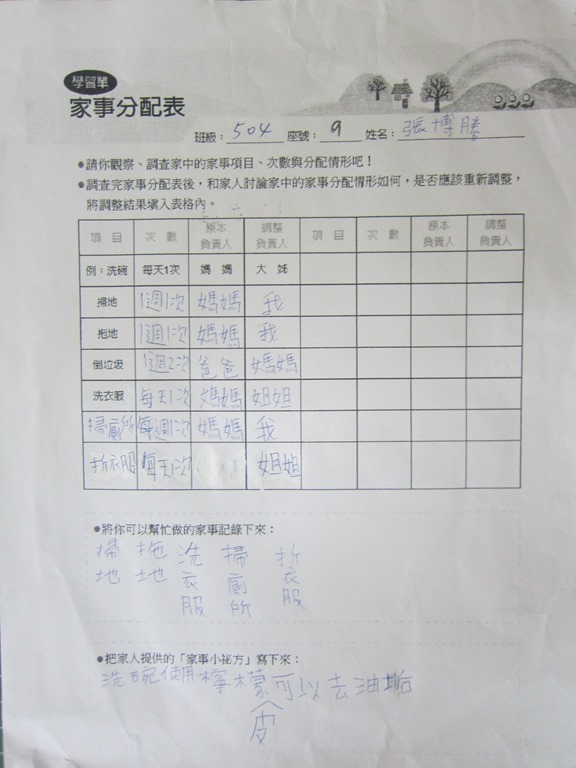 學習單
家事分配表
班級：504 座號：9 姓名：張博勝
●請你觀察、調查家中的家事項目、次數與分配情形吧！
●調查完家事分配表後，和家人討論家中的家事分配情形如何，是否應該重新調整，
將調整結果填入表格內。
項目 次數 原本負責人 調整負責人 項目 次數 原本負責人 調整負責人
例：洗碗 每天1次 媽媽 大姊
掃地 1週1次 媽媽 我
拖地 1週1次 媽媽 我
倒垃圾 1週2次 爸爸 媽媽
洗衣服 每天1次 媽媽 姐姐
掃廁所 每週1次 媽媽 我
折衣服 每天1次 姐姐
●將你可以幫忙做的家事記錄下來：
掃地 拖地 洗衣服 掃廁所 折衣服
●把家人提供的「家事小祕方」寫下來：
洗碗使用檸檬皮可以去油垢